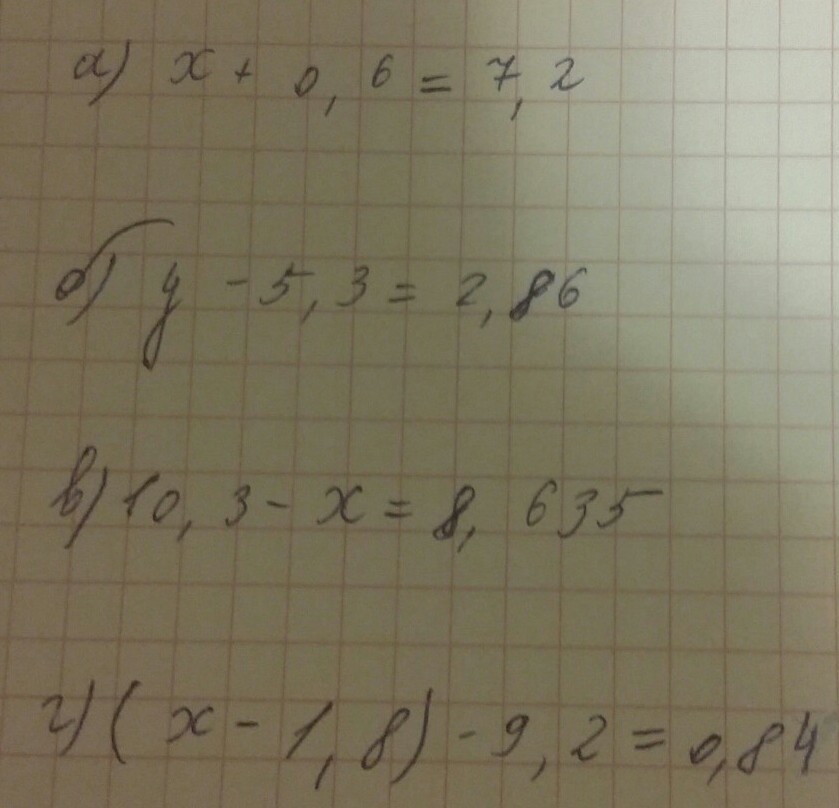 а) x + 0,6 = 7,2
б) y - 5,3 = 2,86
в) 10,3 - x = 8,635
г) (x - 1,8) - 9,2 = 0,84